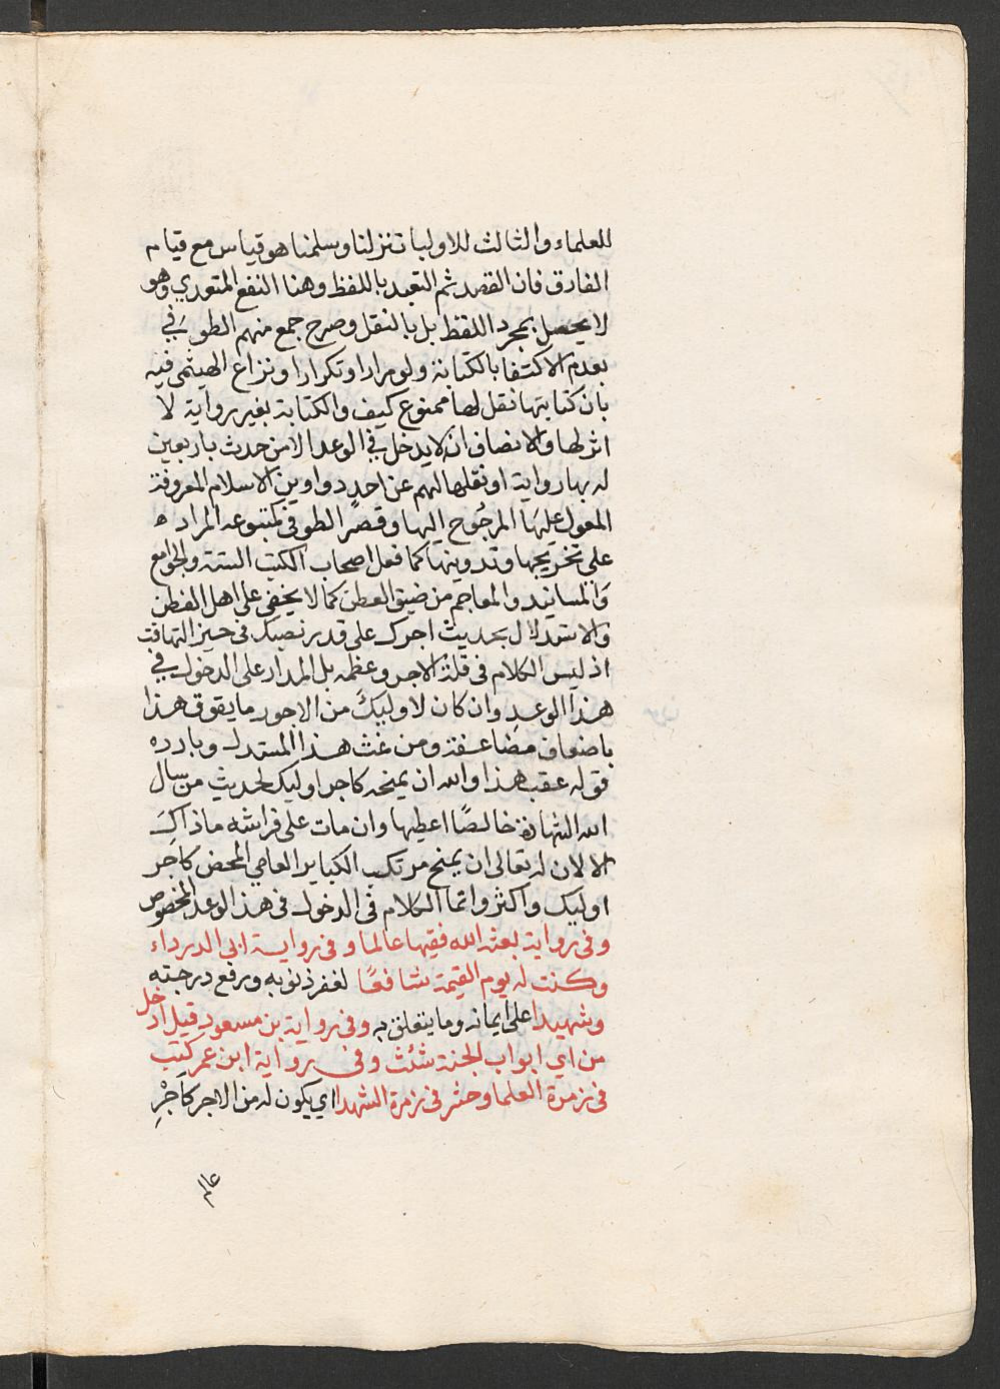 للعلماء والثالث للاوليا تنزلنا وسلمنا هو قياس مع قيام
الفارق فان القصد ثم التعبد باللفظ وهنا النفع المتعدي وهو
لا يحصل بمجرد اللقط بل بالنقل وصرح جمع منهم الطوفي
بعدم الاكتفا بالكتابة ولو مرارا وتكرارا ونزاع الهيثمي فيه
بان كتابتها نقل لها ممنوع كيف والكتابة بغير رواية لا
اثر لها والانصاف انه لا يدخل في الوعد الا من حدث باربعين
له بها رواية او نقلها لهم عن احد دواوين الاسلام المعروفة
المعول عليها المرجوح اليها وقصر الطوفي متبوعه المراد ه
على تخريجها وتدوينها كما فعل اصحاب الكتب الستة والجوامع
والمسانيد والمعاجم من ضيق العطن كما لا يخفى على اهل الفطن
والاستدلال بحديث اجرك على قدر نصبك في حيز التهافت
اذ ليس الكلام في قلة الاجر وعظمه بل المدار على الدخول في
هذا الوعد وان كان لاوليك من الاجور ما يفوق هذا
باضعاف مضاعفة ومن غث هذا المستدل وبارده
قوله عقب هذا والله ان يمنحه كاجر اوليك لحديث من سال
الله الشهادة خالصا اعطيها وان مات على فراشه ماذاك
الا لان له تعالى ان يمنح مرتكب الكباير العامي المحض كاجر
اوليك واكثر وانما الكلام في الدخول في هذ الوعد المخصوص
وفي رواية بعثه الله فقيها عالما وفي رواية ابي الدرداء
وكنت له يوم القيمة شافعًا لغفر ذنوبه ورفع درجته
وشهيدا على ايمانه وما يتعلق به وفي رواية بن مسعود قيل ادخل
من اي ابواب الجنة شئت وفي رواية ابن عمر كتب
في زمرة العلما وحشر في زمرة الشهدا اي يكون له من الاجر كاجر